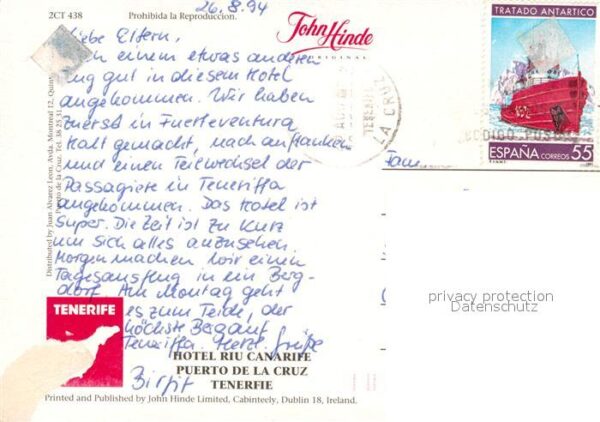 2CT 438
Prohibida la Reproduccion.
26.8.94
John Hinde
ORIGINAL
TRATADO ANTARTICO
ESPAÑA CORREOS 55
TENERIFE
LA CRUZ
Liebe Eltern,
einem etwas anderen
gut in diesem Hotel
angekommen. Wir haben
zuerst in Fuerteventura
Halt gemacht, nach auftanken
und einen Teilwechsel der
Passagiere in Teneriffa
angekommen. Das Hotel ist
super. Die Zeit ist zu kurz
um sich alles anzusehen.
Morgen machen wir einen
Tagesausflug in ein Berg-
dorf. Am Montag geht
es zum Teide, der
höchste Berg auf
Teneriffa. Herzl. Grüße
Birgit
Fam
Distributed by Juan Alvarez Leon, Avda. Montreal 12, Quin
Puerto de la Cruz. Tel. 38 25 31
TENERIFE
HOTEL RIU CANARIFE
PUERTO DE LA CRUZ
TENERFIE
Printed and Published by John Hinde Limited, Cabinteely, Dublin 18, Ireland.
privacy protection
Datenschutz